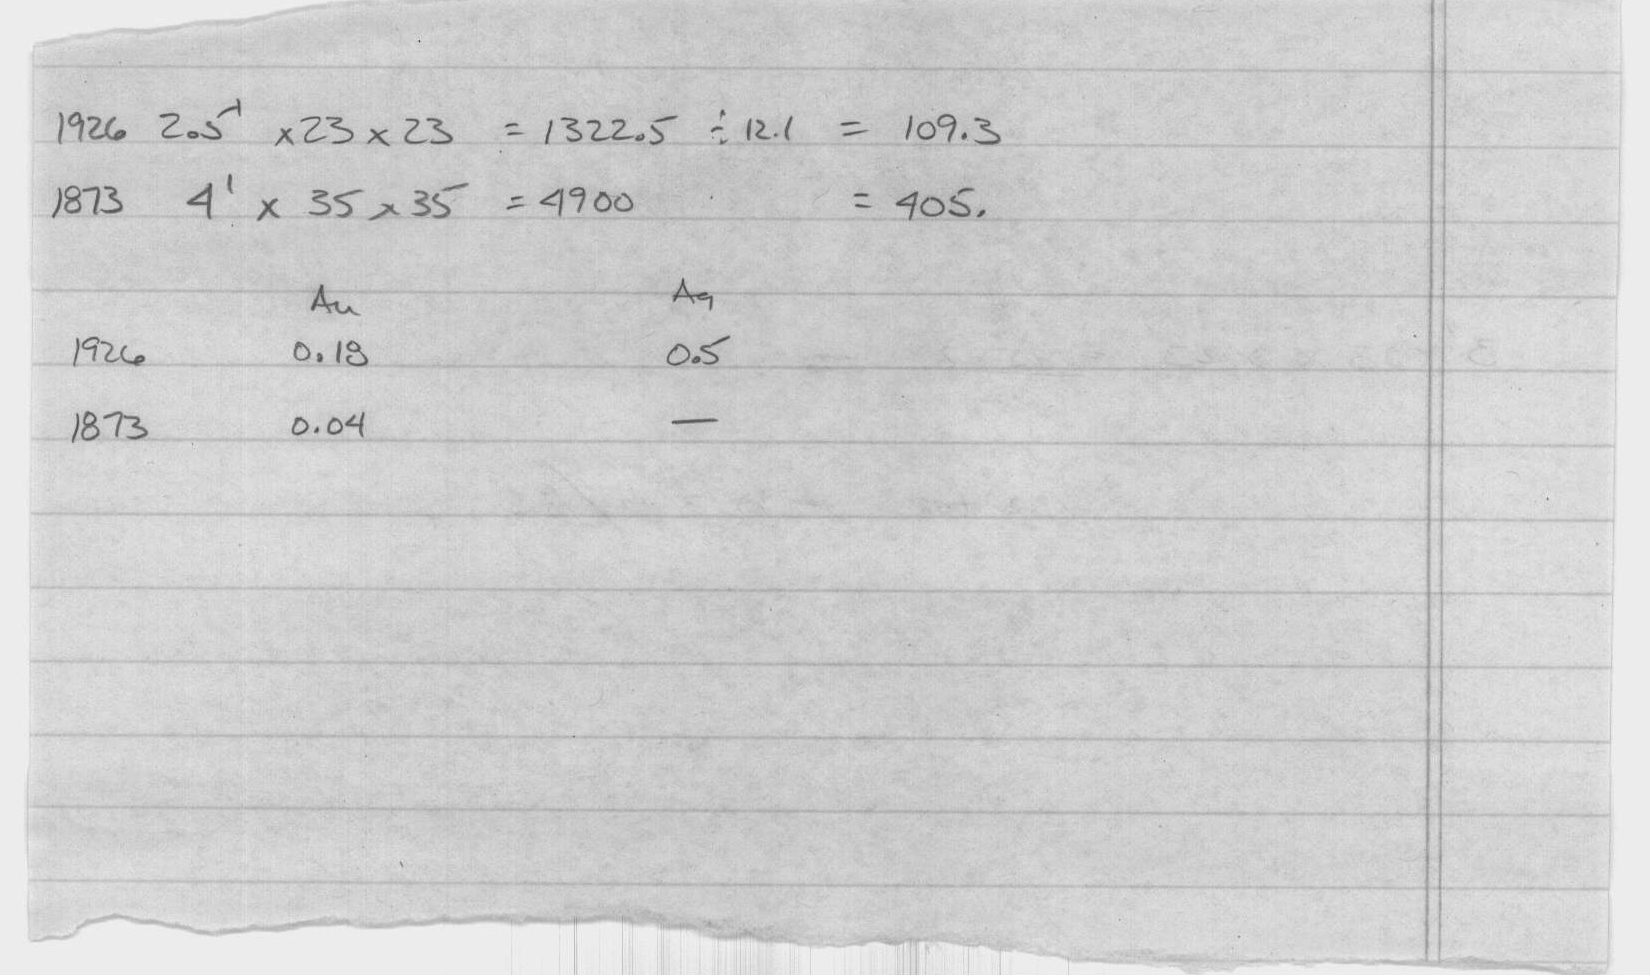 1926 2.5' x 23 x 23 = 1322.5 ÷ 12.1 = 109.3
1873 4' x 35 x 35 = 4900 = 405.
Au Ag
1926 0.18 0.5
1873 0.04 —